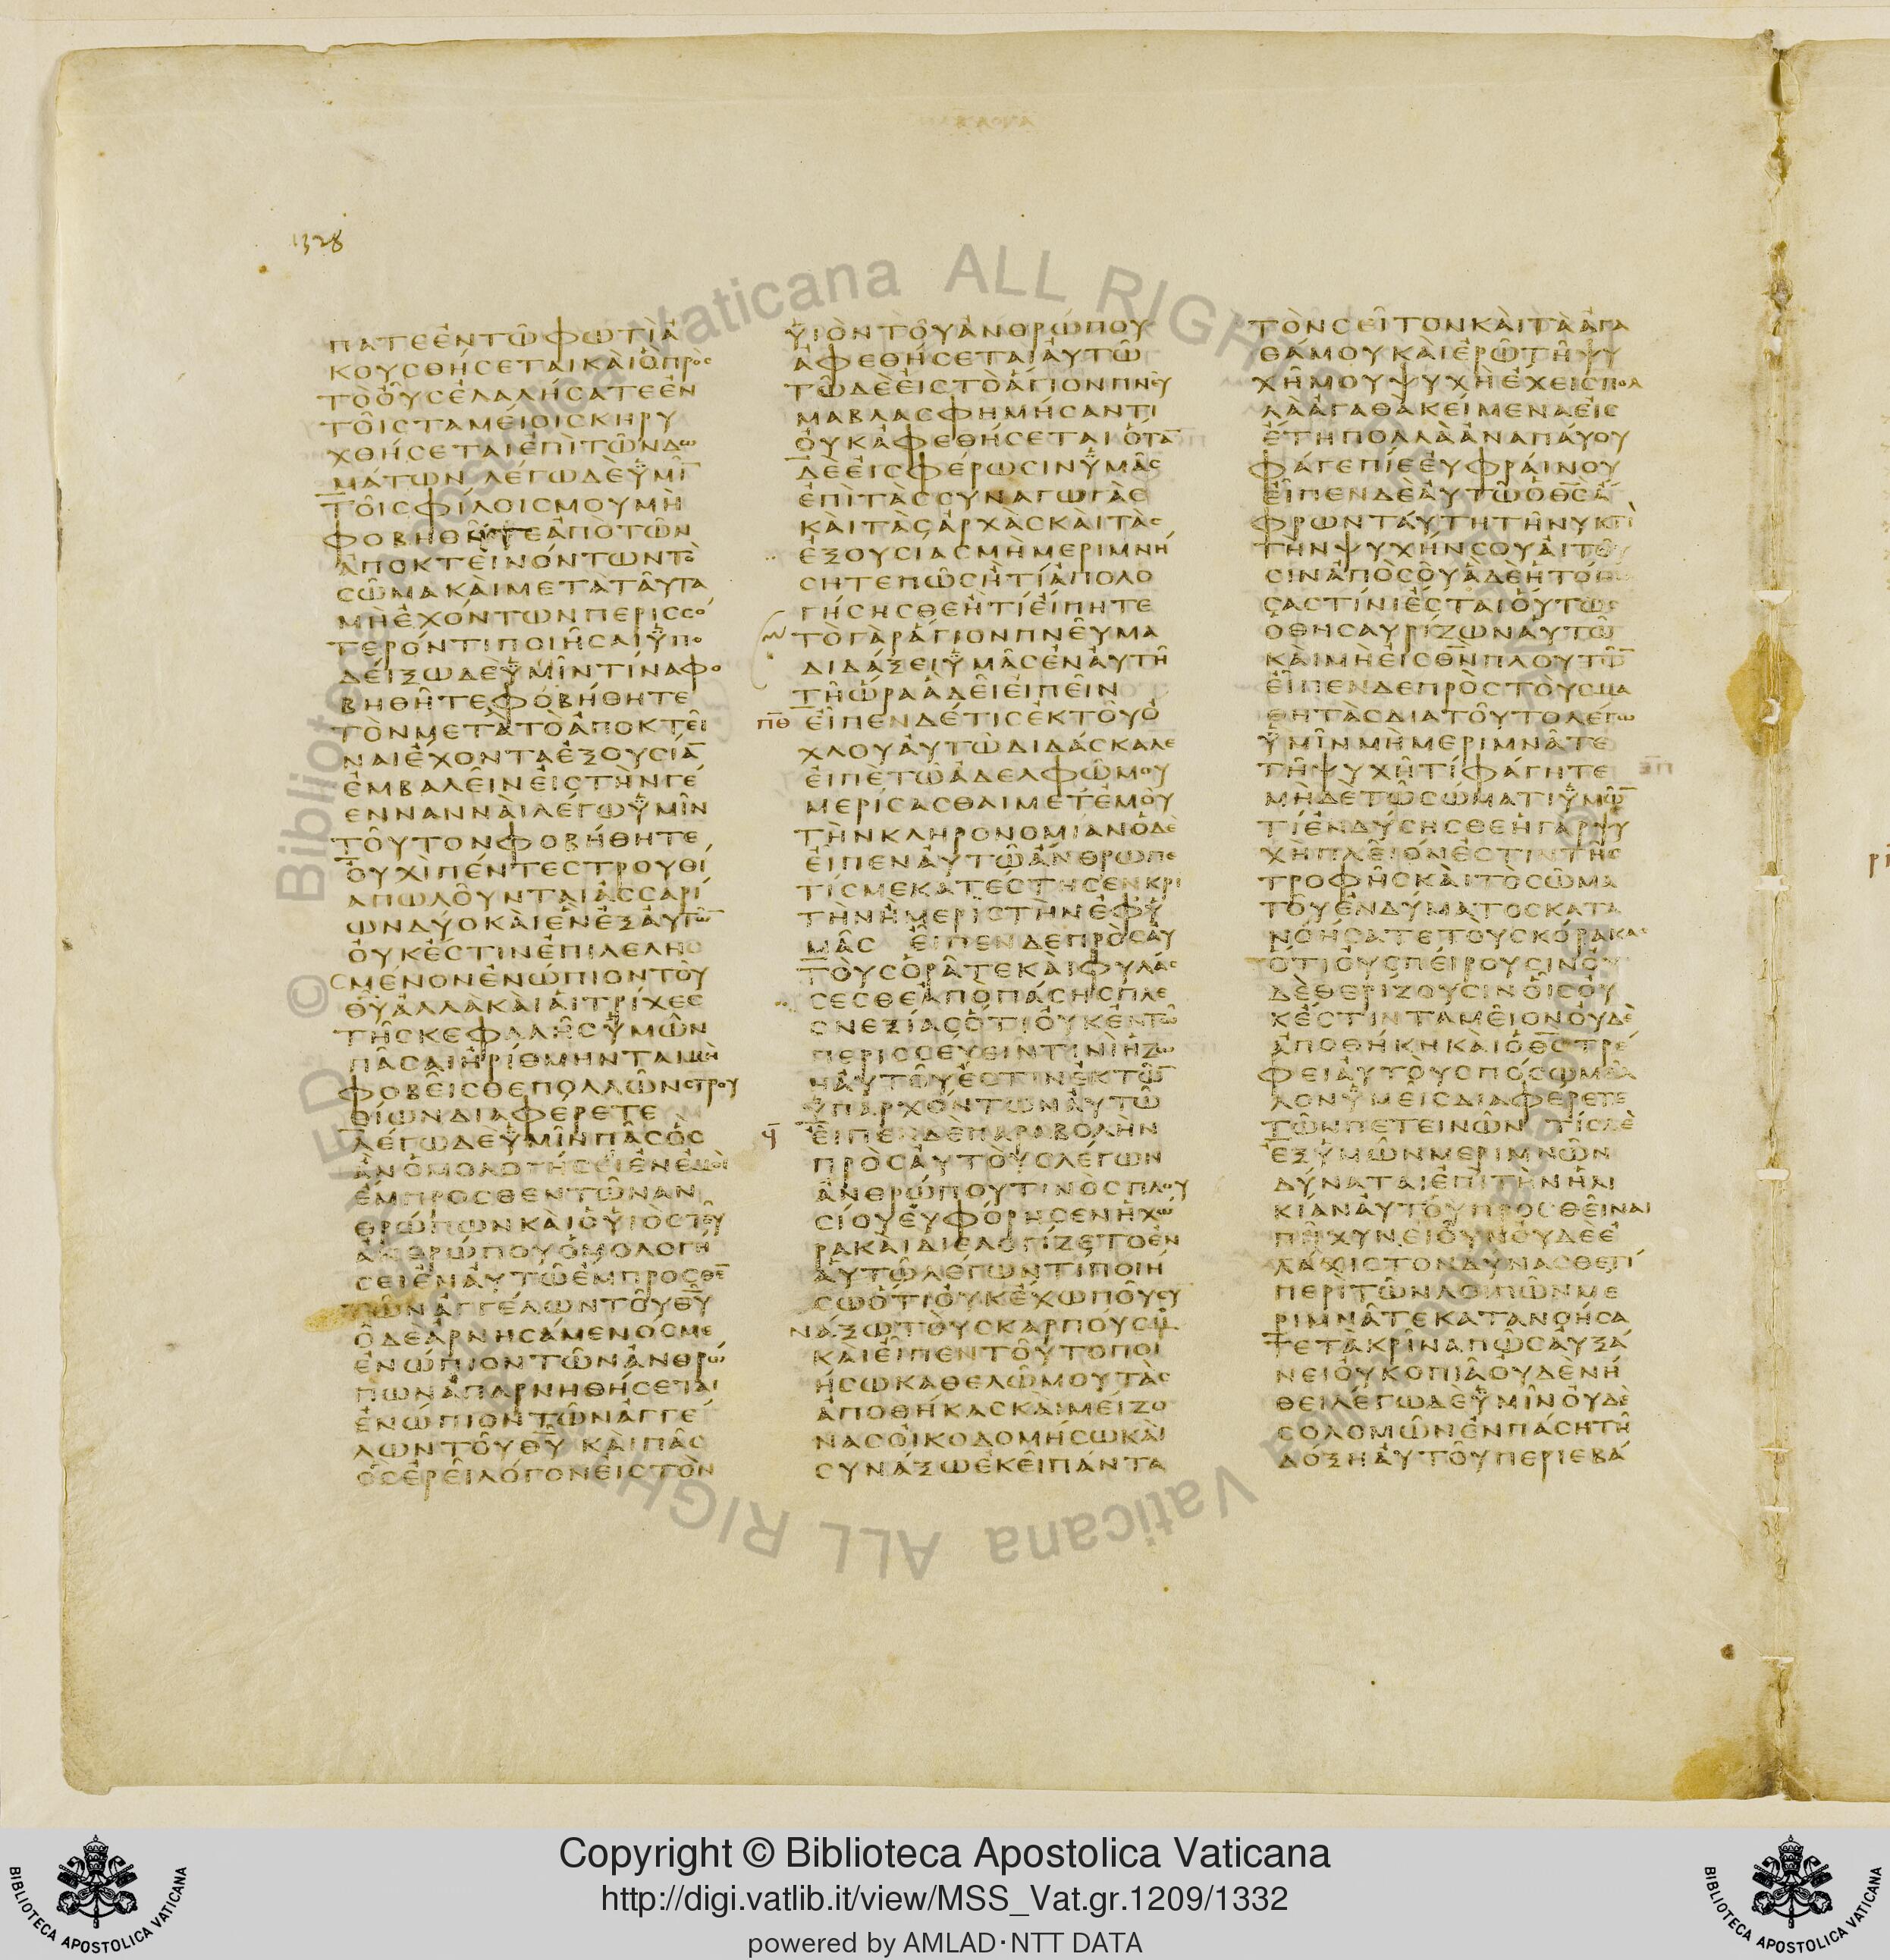 1328
ΠΑΤΕΕΝΤΩΦΩΤΙΑ
ΚΟΥΣΘΗΣΕΤΑΙΚΑΙΟΠΡΟΣ
ΤΟΟΥΣΕΛΑΛΗΣΑΤΕΕΝ
ΤΟΙΣΤΑΜΕΙΟΙΣΚΗΡΥ
ΧΘΗΣΕΤΑΙΕΠΙΤΩΝΔΩ
ΜΑΤΩΝ ΛΕΓΩΔΕΥΜΙ̅
ΤΟΙΣΦΙΛΟΙΣΜΟΥΜΗ
ΦΟΒΗΘΗΤΕΑΠΟΤΩΝ
ΑΠΟΚΤΕΙΝΟΝΤΩΝΤΟ
ΣΩΜΑΚΑΙΜΕΤΑΤΑΥΤΑ
ΜΗΕΧΟΝΤΩΝΠΕΡΙΣΣΟ
ΤΕΡΟΝΤΙΠΟΙΗΣΑΙΥΠΟ
ΔΕΙΞΩΔΕΥΜΙΝΤΙΝΑΦΟ
ΒΗΘΗΤΕΦΟΒΗΘΗΤΕ
ΤΟΝΜΕΤΑΤΟΑΠΟΚΤΕΙ
ΝΑΙΕΧΟΝΤΑΕΞΟΥΣΙΑ̅
ΕΜΒΑΛΕΙΝΕΙΣΤΗΝΓΕ
ΕΝΝΑΝΝΑΙΛΕΓΩΥΜΙΝ
ΤΟΥΤΟΝΦΟΒΗΘΗΤΕ
ΟΥΧΙΠΕΝΤΕΣΤΡΟΥΘΙ
ΑΠΩΛΟΥΝΤΑΙΑΣΣΑΡΙ
ΩΝΔΥΟΚΑΙΕΝΕΞΑΥΤΩ̅
ΟΥΚΕΣΤΙΝΕΠΙΛΕΛΗΣ
ΣΜΕΝΟΝΕΝΩΠΙΟΝΤΟΥ
Θ̅Υ̅ΑΛΛΑΚΑΙΑΙΤΡΙΧΕΣ
ΤΗΣΚΕΦΑΛΗΣΥΜΩΝ
ΠΑΣΑΙΗΡΙΘΜΗΝΤΑΙΜΗ
ΦΟΒΕΙΣΘΕΠΟΛΛΩΝΣΤΡΟΥ
ΘΙΩΝΔΙΑΦΕΡΕΤΕ
ΛΕΓΩΔΕΥΜΙΝΠΑΣΟΣ
ΑΝΟΜΟΛΟΓΗΣΕΙΕΝΕΜΟΙ
ΕΜΠΡΟΣΘΕΝΤΩΝΑΝ
ΘΡΩΠΩΝΚΑΙΟΥΙΟΣΤΟΥ
ΑΝΘΡΩΠΟΥΟΜΟΛΟΓΗ
ΣΕΙΕΝΑΥΤΩΕΜΠΡΟΣΘΕ̅
ΤΩΝΑΓΓΕΛΩΝΤΟΥΘ̅Υ̅
ΟΔΕΑΡΝΗΣΑΜΕΝΟΣΜΕ
ΕΝΩΠΙΟΝΤΩΝΑΝΘΡΩ
ΠΩΝΑΠΑΡΝΗΘΗΣΕΤΑΙ
ΕΝΩΠΙΟΝΤΩΝΑΓΓΕ
ΛΩΝΤΟΥΘ̅Υ̅ ΚΑΙΠΑΣ
ΟΣΕΡΕΙΛΟΓΟΝΕΙΣΤΟΝ
ΥΙΟΝΤΟΥΑΝΘΡΩΠΟΥ
ΑΦΕΘΗΣΕΤΑΙΑΥΤΩ
ΤΩΔΕΕΙΣΤΟΑΓΙΟΝΠΝΕΥ
ΜΑΒΛΑΣΦΗΜΗΣΑΝΤΙ
ΟΥΚΑΦΕΘΗΣΕΤΑΙ ΟΤΑ̅
ΔΕΕΙΣΦΕΡΩΣΙΝΥΜΑΣ
ΕΠΙΤΑΣΣΥΝΑΓΩΓΑΣ
ΚΑΙΤΑΣΑΡΧΑΣΚΑΙΤΑΣ
ΕΞΟΥΣΙΑΣΜΗΜΕΡΙΜΝΗ
ΣΗΤΕΠΩΣΗΤΙΑΠΟΛΟ
ΓΗΣΗΣΘΕΗΤΙΕΙΠΗΤΕ
ΤΟΓΑΡΑΓΙΟΝΠΝΕΥΜΑ
ΔΙΔΑΞΕΙΥΜΑΣΕΝΑΥΤΗ
ΤΗΩΡΑΑΔΕΙΕΙΠΕΙΝ
Π̅Θ̅ ΕΙΠΕΝΔΕΤΙΣΕΚΤΟΥΟ
ΧΛΟΥΑΥΤΩΔΙΔΑΣΚΑΛΕ
ΕΙΠΕΤΩΑΔΕΛΦΩΜΟΥ
ΜΕΡΙΣΑΣΘΑΙΜΕΤΕΜΟΥ
ΤΗΝΚΛΗΡΟΝΟΜΙΑΝΟΔΕ
ΕΙΠΕΝΑΥΤΩΑΝΘΡΩΠΕ
ΤΙΣΜΕΚΑΤΕΣΤΗΣΕΝΚΡΙ
ΤΗΝΗΜΕΡΙΣΤΗΝΕΦΥ
ΜΑΣ ΕΙΠΕΝΔΕΠΡΟΣΑΥ
ΤΟΥΣΟΡΑΤΕΚΑΙΦΥΛΑΣ
ΣΕΣΘΕΑΠΟΠΑΣΗΣΠΛΕ
ΟΝΕΞΙΑΣΟΤΙΟΥΚΕΝΤΩ
ΠΕΡΙΣΣΕΥΕΙΝΤΙΝΙΗΖΩ
ΗΑΥΤΟΥΕΣΤΙΝΕΚΤΩ̅
ΥΠΑΡΧΟΝΤΩΝΑΥΤΩ
Ϟ̅ ΕΙΠΕΝΔΕΠΑΡΑΒΟΛΗΝ
ΠΡΟΣΑΥΤΟΥΣΛΕΓΩΝ
ΑΝΘΡΩΠΟΥΤΙΝΟΣΠΛΟΥ
ΣΙΟΥΕΥΦΟΡΗΣΕΝΗΧΩ
ΡΑΚΑΙΔΙΕΛΟΓΙΖΕΤΟΕΝ
ΑΥΤΩΛΕΓΩΝΤΙΠΟΙΗ
ΣΩΟΤΙΟΥΚΕΧΩΠΟΥΣΥ
ΝΑΞΩΤΟΥΣΚΑΡΠΟΥΣΜΟΥ
ΚΑΙΕΙΠΕΝΤΟΥΤΟΠΟΙ
ΗΣΩΚΑΘΕΛΩΜΟΥΤΑΣ
ΑΠΟΘΗΚΑΣΚΑΙΜΕΙΖΟ
ΝΑΣΟΙΚΟΔΟΜΗΣΩΚΑΙ
ΣΥΝΑΞΩΕΚΕΙΠΑΝΤΑ
ΤΟΝΣΕΙΤΟΝΚΑΙΤΑΑΓΑ
ΘΑΜΟΥΚΑΙΕΡΩΤΗΨΥ
ΧΗΜΟΥΨΥΧΗΕΧΕΙΣΠΟΛ
ΛΑΑΓΑΘΑΚΕΙΜΕΝΑΕΙΣ
ΕΤΗΠΟΛΛΑΑΝΑΠΑΥΟΥ
ΦΑΓΕΠΙΕΕΥΦΡΑΙΝΟΥ
ΕΙΠΕΝΔΕΑΥΤΩΟΘ̅Σ̅Α
ΦΡΩΝΤΑΥΤΗΤΗΝΥΚΤΙ
ΤΗΝΨΥΧΗΝΣΟΥΑΙΤΟΥ
ΣΙΝΑΠΟΣΟΥΑΔΕΗΤΟΙΜΑ
ΣΑΣΤΙΝΙΕΣΤΑΙΟΥΤΩΣ
ΟΘΗΣΑΥΡΙΖΩΝΑΥΤΩ
ΚΑΙΜΗΕΙΣΘ̅Ν̅ΠΛΟΥΤΩ̅
ΕΙΠΕΝΔΕΠΡΟΣΤΟΥΣΜΑ
ΘΗΤΑΣΔΙΑΤΟΥΤΟΛΕΓΩ
ΥΜΙΝΜΗΜΕΡΙΜΝΑΤΕ
ΤΗΨΥΧΗΤΙΦΑΓΗΤΕ
ΜΗΔΕΤΩΣΩΜΑΤΙΥΜΩ̅
ΤΙΕΝΔΥΣΗΣΘΕΗΓΑΡΨΥ
ΧΗΠΛΕΙΟΝΕΣΤΙΝΤΗΣ
ΤΡΟΦΗΣΚΑΙΤΟΣΩΜΑ
ΤΟΥΕΝΔΥΜΑΤΟΣΚΑΤΑ
ΝΟΗΣΑΤΕΤΟΥΣΚΟΡΑΚΑΣ
ΟΤΙΟΥΣΠΕΙΡΟΥΣΙΝΟΥ
ΔΕΘΕΡΙΖΟΥΣΙΝΟΙΣΟΥ
ΚΕΣΤΙΝΤΑΜΕΙΟΝΟΥΔΕ
ΑΠΟΘΗΚΗΚΑΙΟΘ̅Σ̅ΤΡΕ
ΦΕΙΑΥΤΟΥΣΠΟΣΩΜΑΛ
ΛΟΝΥΜΕΙΣΔΙΑΦΕΡΕΤΕ
ΤΩΝΠΕΤΕΙΝΩΝ ΤΙΣΔΕ
ΕΞΥΜΩΝΜΕΡΙΜΝΩΝ
ΔΥΝΑΤΑΙΕΠΙΤΗΝΗΛΙ
ΚΙΑΝΑΥΤΟΥΠΡΟΣΘΕΙΝΑΙ
ΠΗΧΥΝΕΙΟΥΝΟΥΔΕΕ
ΛΑΧΙΣΤΟΝΔΥΝΑΣΘΕΤΙ
ΠΕΡΙΤΩΝΛΟΙΠΩΝΜΕ
ΡΙΜΝΑΤΕΚΑΤΑΝΟΗΣΑ
ΤΕΤΑΚΡΙΝΑΠΩΣΑΥΞΑ
ΝΕΙΟΥΚΟΠΙΑΟΥΔΕΝΗ
ΘΕΙΛΕΓΩΔΕΥΜΙΝΟΥΔΕ
ΣΟΛΟΜΩΝΕΝΠΑΣΗΤΗ
ΔΟΞΗΑΥΤΟΥΠΕΡΙΕΒΑ
© Biblioteca Apostolica Vaticana ALL RIGHTS RESERVED
Copyright © Biblioteca Apostolica Vaticana
http://digi.vatlib.it/view/MSS_Vat.gr.1209/1332
powered by AMLAD·NTT DATA
BIBLIOTECA APOSTOLICA VATICANA
BIBLIOTECA APOSTOLICA VATICANA